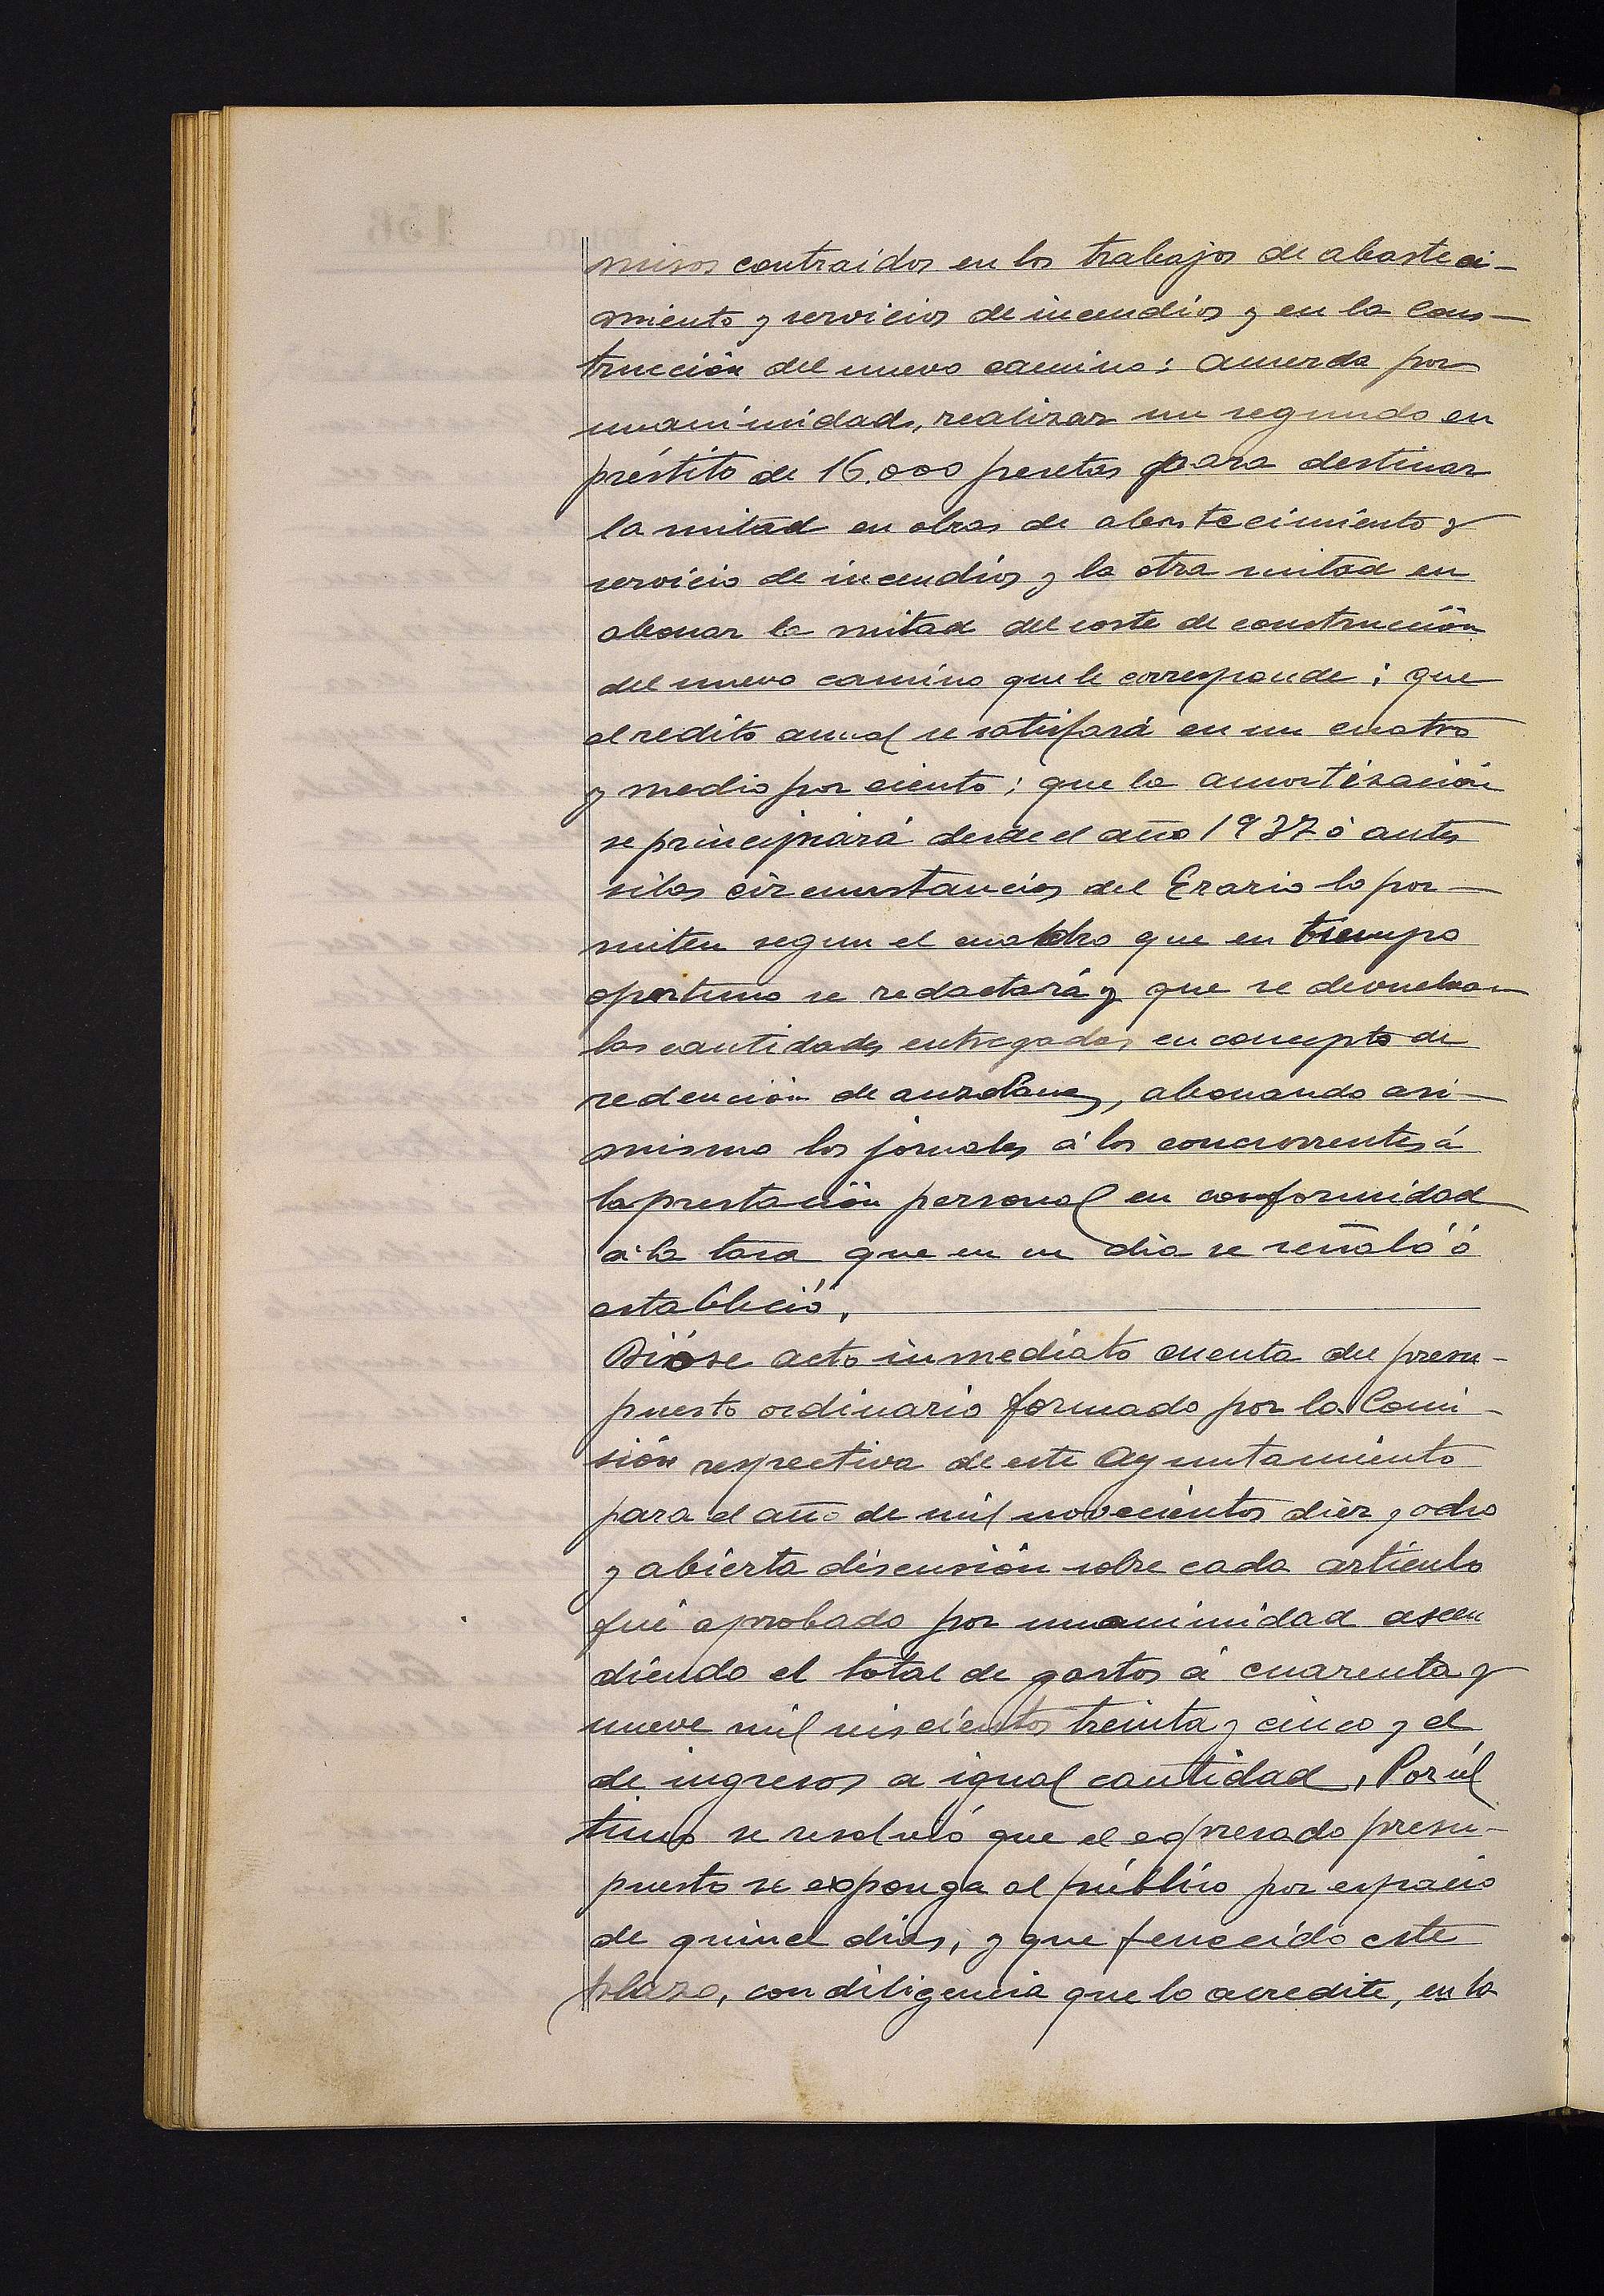 misos contraidos en los trabajos de abasteci-
miento y servicios de incendios y en la cons-
trucción del nuevo camino: acuerda por
unanimidad, realizar un segundo en
préstito de 16.000 pesetas para destinar
la mitad en obras de abastecimiento y
servicio de incendios y la otra mitad en
abonar la mitad del coste de construcción
del nuevo camino que le corresponde; que
el redito anual se satisfará en un cuatro
y medio por ciento; que la amortización
se principiará desde el año 1937 ó antes
si las circunstancias del Erario lo per-
miten segun el cuadro que en tiempo
oportuno se redactará y que se devuelvan
las cantidades entregadas en concepto de
redención de auzolanes, abonando asi-
mismo los jornales á los concurrentes á
la prestación personal en conformidad
á la tasa que en un dia se señaló ó
estableció.
Dióse acto inmediato cuenta del presu-
puesto ordinario formado por la Comi-
sión respectiva de este Ayuntamiento
para el año de mil novecientos diez y ocho
y abierta discusión sobre cada articulo
fué aprobado por unanimidad ascen
diendo el total de gastos á cuarenta y
nueve mil seiscientos treinta y cinco y el
de ingresos a igual cantidad. Por úl
timo se resolvió que el expresado presu-
puesto se exponga al público por espacio
de quince dias, y que fenecido este
plazo, con diligencia que lo acredite, en la